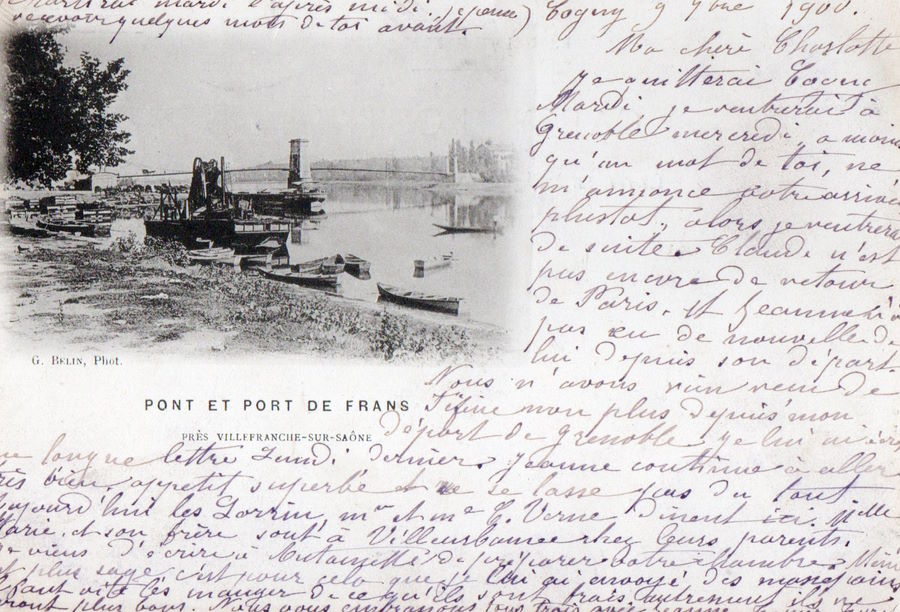 mardi l'après midi, je pense) Cogny 9 9bre 1900.
recevoir quelques mots de toi avant.
Ma chère Charlotte
Je quitterai Cogny
Mardi, je rentrerai à
Grenoble mercredi, a moins
qu'un mot de toi, ne
m'annonce votre arrivée
plustot, alors je rentrerai
de suite. Claude n'est
pas encore de retour
de Paris, et Jeanne n'a
pas eu de nouvelle de
lui depuis son départ.
G. BELIN, Phot.
Nous n'avons rien reçu de
PONT ET PORT DE FRANS
Fifine non plus depuis mon
PRÈS VILLEFRANCHE-SUR-SAÔNE
départ de Grenoble je lui ai écrit
une longue lettre Lundi dernier. Jeanne continue à aller
très bien, appetit superbe et ne se lasse pas du tout
aujourd'hui les Lorrin, mr et me C. Verne dinent ici. Melle
Marie, et son frère sont à Villeurbanne chez leurs parents.
Je viens d'écrire à de préparer votre chambre.
et plus sage, c'est pour cela que je lui ai envoyé des
Il faut vite les manger de ce qu'ils sont frais, autrement ils ne
seront plus bons. Nous vous embrassons tous trois avec